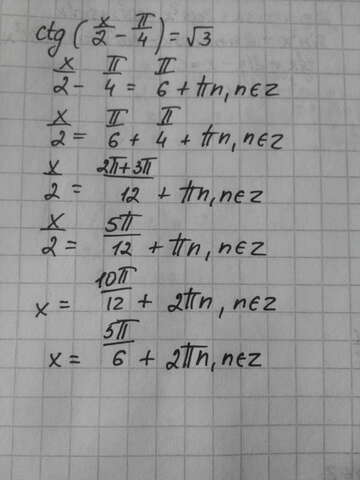 ctg(x/2 - π/4) = √3
x/2 - π/4 = π/6 + πn, n∈z
x/2 = π/6 + π/4 + πn, n∈z
x/2 = 2π+3π/12 + πn, n∈z
x/2 = 5π/12 + πn, n∈z
x = 10π/12 + 2πn, n∈z
x = 5π/6 + 2πn, n∈z